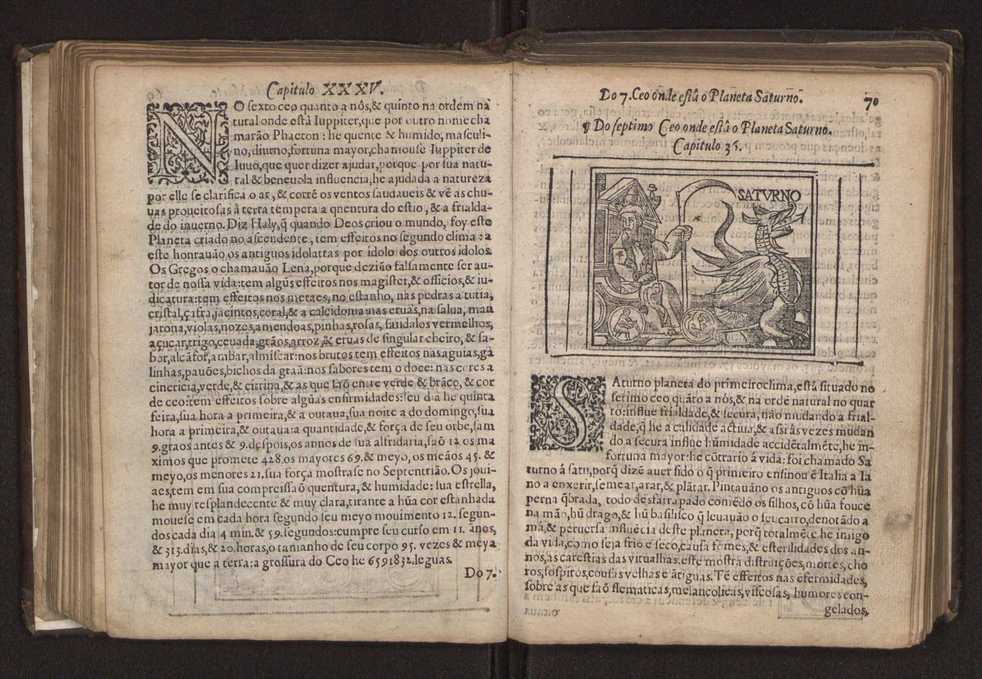 Capitulo XXXV.
NO sexto ceo quanto a nós,& quinto na ordem na
tural onde està Iuppiter,que por outro nome cha
marão Phaeton: he quente & humido, masculi
no, diurno,fortuna mayor,chamouse Iuppiter de
Iuuo,que quer dizer ajudar,porque por sua natu-
ral & beneuola influencia,he ajudada a natureza
por elle se clarifica o ar, & corrẽ os ventos saudaueis & vẽ as chu-
uas proueitosas à terra tempera a quentura do estio, & a frialda-
de do inuerno. Diz Haly,q̃ quando Deos criou o mundo, foy este
Planeta criado no ascendente, tem effeitos no segundo clima: a
este honrauão os antiguos idolattas por idolo dos outros idolos.
Os Gregos o chamauão Lena,porque dezião falsamente ser au-
tor de nossa vida: tem algũs effeitos nos magister,& officios,& iu-
dicatura: tem effeitos nos metaes, no estanho, nas pedras a tutia,
cristal, çafra,jacintos,coral,& a calcidonia nas eruas,na salua, man
jarona,violas,nozes,amendoas,pinhas,rosas, sandalos vermelhos,
açucar,trigo,ceuada,grãos,arroz,& eruas de singular cheiro, & sa-
bor,alcãfor,ambar,almiscar: nos brutos tem effeitos nas aguias,ga
linhas,pauões,bichos da graã: nos sabores tem o doce: nas cores a
cinericia,verde,& citrina,& as que saõ entre verde & brãco, & cor
de ceo: tem effeitos sobre algũas enfirmidades: seu dia he quinta
feita,sua hora a primeira,& a outaua,sua noite a do domingo,sua
hora a primeira,& outaua: a quantidade,& força de seu orbe,sam
9.graos antes & 9.despois,os annos de sua alfridaria,saõ 12 os ma
ximos que promete 428.os mayores 69.& meyo, os meãos 45. &
meyo,os menores 21.sua força mostrase no Septentrião. Os joui-
aes,tem em sua compreissaõ quentura, & humidade: sua estrella,
he muy resplandecente & muy clara,tirante a hũa cor estanhada
mouese em cada hora segundo seu meyo mouimento 12. segun-
dos cada dia 4 min. & 59.segundos: cumpre seu curso em 11. ãnos,
& 313.dias,& 20.horas,o tamanho de seu corpo 95. vezes & meya
mayor que a terra: a grossura do Ceo he 6591832.leguas.
Do 7.
Do 7. Ceo onde està o Planeta Saturno. 70
¶ Do septimo Ceo onde està o Planeta Saturno.
Capitulo 35.
SATVRNO
SAturno planeta do primeiro clima,està situado no
setimo ceo quãto a nòs,& na ordẽ natural no quar
to: influe frialdade,& secura, não mudando a frial-
dade,q̃ he a calidade actiua,& assi às vezes mudan
do a secura influe hũmidade accidẽtalmẽte,he in-
fortuna mayor: he cõtrario á vida: foi chamado Sa
turno à satu,porq̃ dizẽ auer sido o q̃ primeiro ensinou ẽ Italia a la
no a enxerir,semear,arar,& plãtar. Pintauãno os antiguos cõ hũa
perna q̃brada, todo desfarrapado comẽdo os filhos, cõ hũa fouce
na mão,hũ drago,& hũ basilico q̃ leuauão o seu carro,denotãdo a
má,& peruersa influẽcia deste planeta, porq̃ totalmẽte he imigo
da vida,como seja frio e seco,causa fomes,& esterilidades dos an-
nos,as carestias das vitualhas: este mostra distruições,mortes, cho
ros,sospiros,cousas velhas e ãtiguas. Tẽ effeitos nas ẽfermidades,
sobre as que saõ flematicas,melancolicas,viscosas, humores con-
gelados,